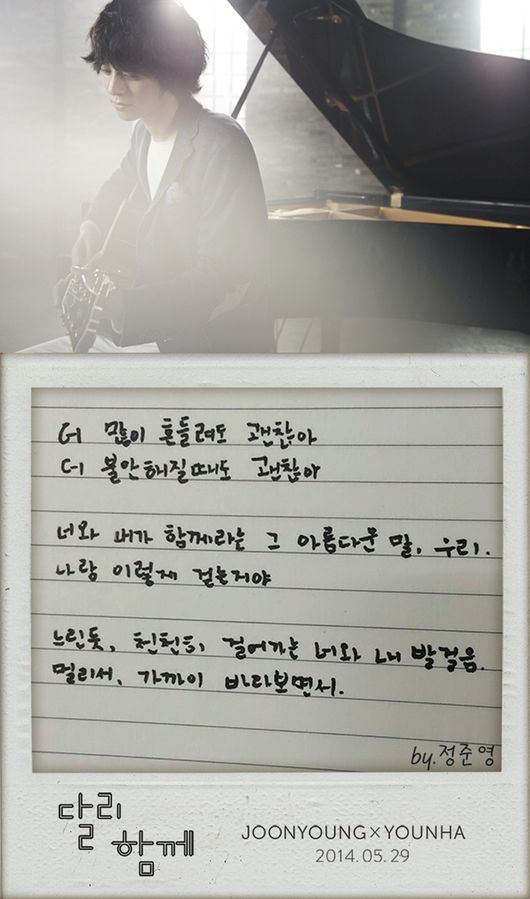 더 많이 흔들려도 괜찮아
더 불안해질때도 괜찮아
너와 내가 함께라는 그 아름다운 말, 우리.
나랑 이렇게 걷는거야
느린듯, 천천히, 걸어가는 너와 내 발걸음.
멀리서, 가까이 바라보면서.
by.정준영
달리
함께
JOONYOUNG×YOUNHA
2014.05.29